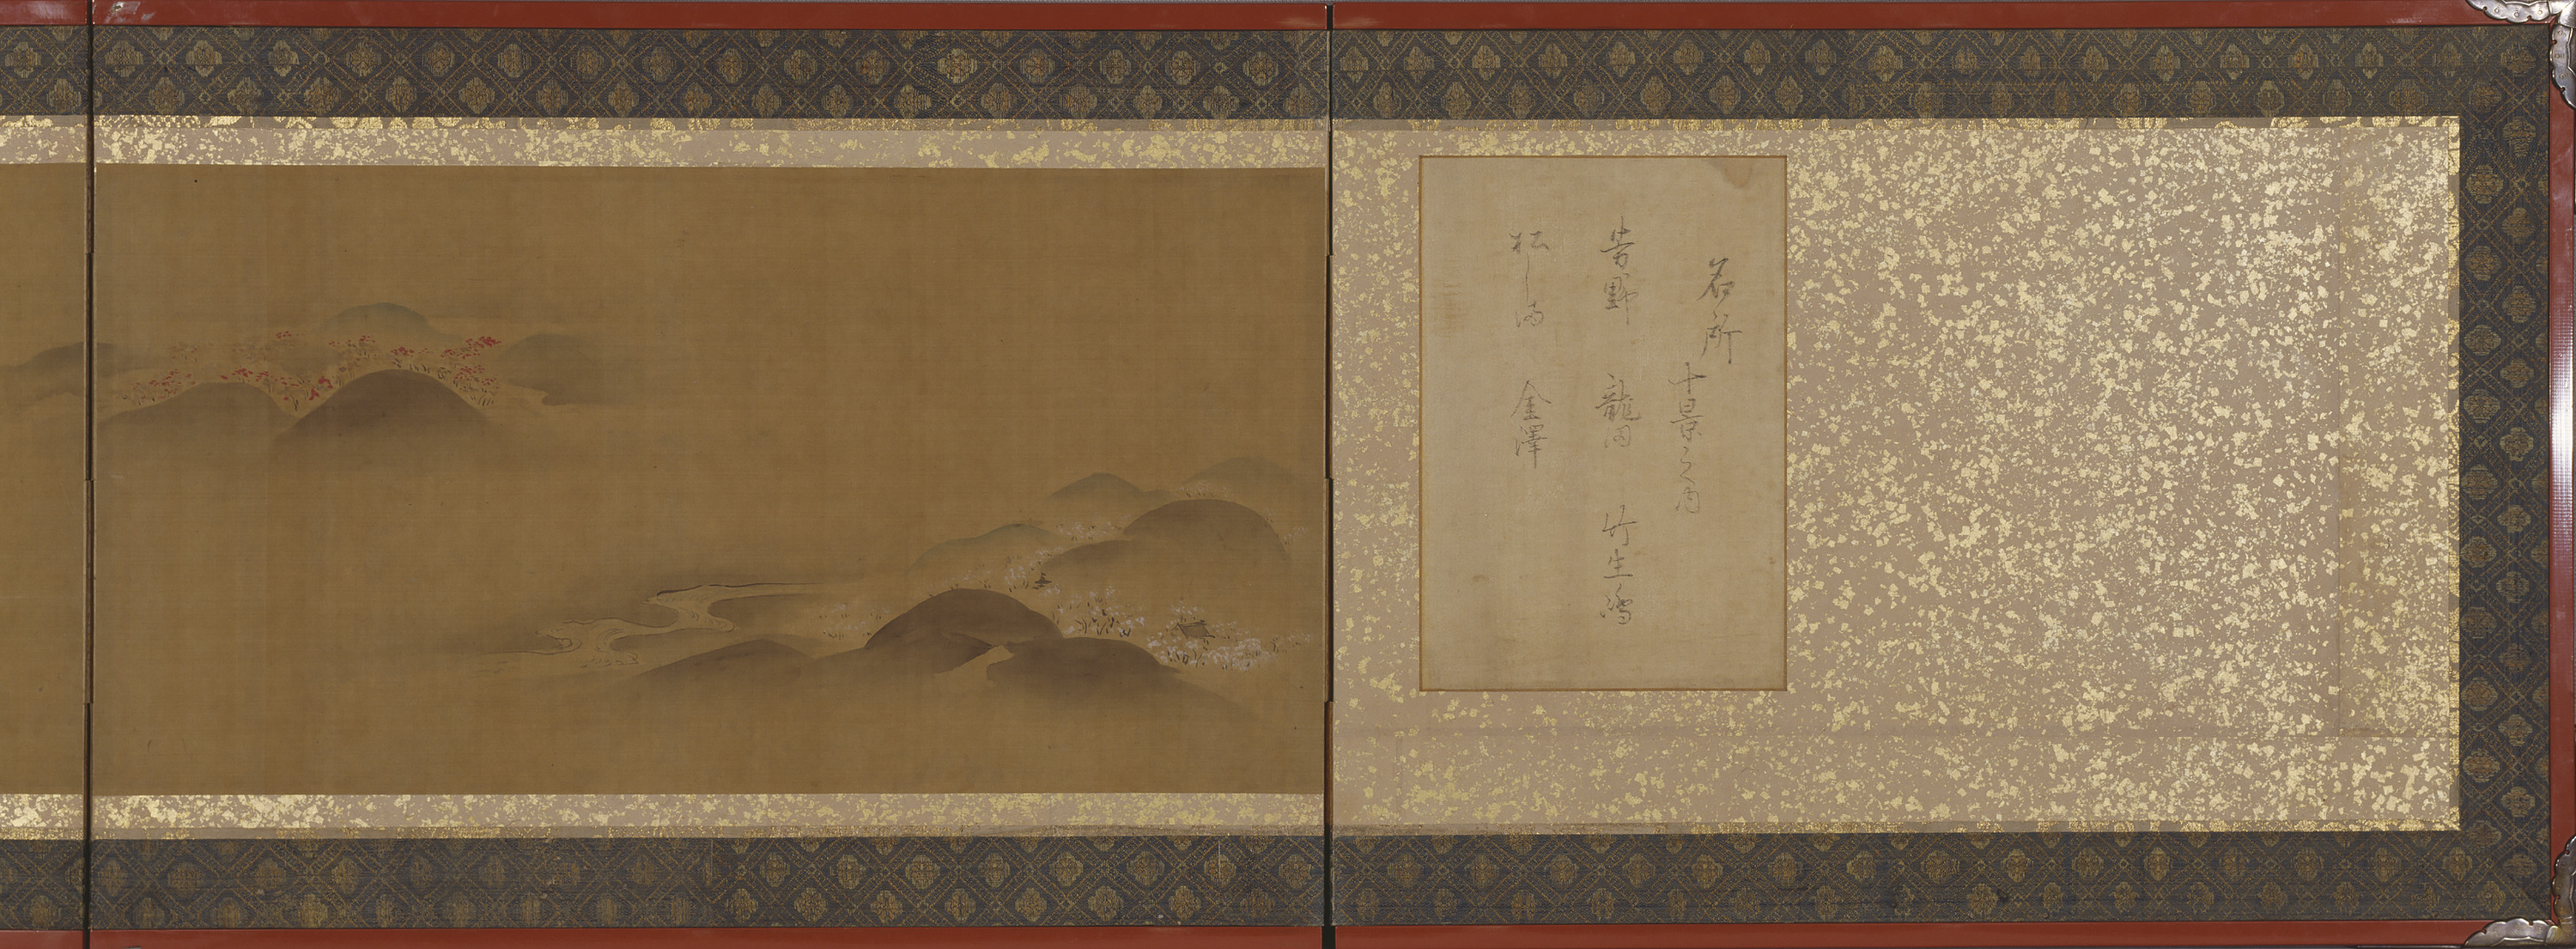 名所
十景之内
芳野 龍田 竹生嶋
松しま 金澤